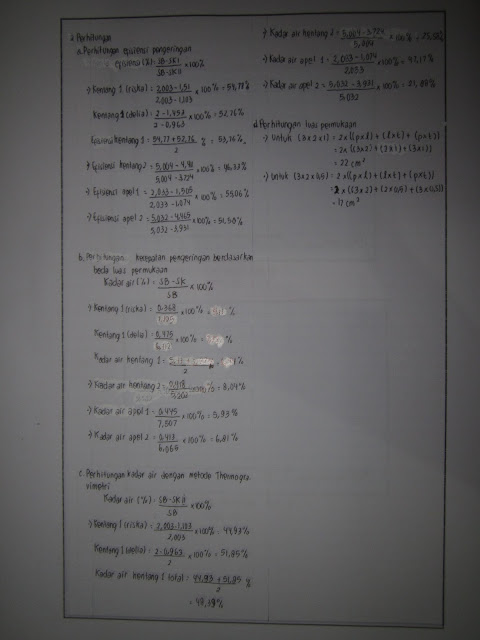 2. Perhitungan
a. Perhitungan efisiensi pengeringan
Efisiensi (%) = SB-SK1 / SB-SKII × 100%
→ Kentang 1 (riska) = 2,003-1,51 / 2,003-1,103 × 100% = 54,77%
Kentang 1 (delia) = 2-1,457 / 2-0,963 × 100% = 52,76%
Efisiensi kentang 1 = 54,77+52,76 / 2 % = 53,76%
→ Efisiensi kentang 2 = 5,004-4,41 / 5,004-3,724 × 100% =
→ Efisiensi apel 1 = 2,033-1,505 / 2,033-1,074 × 100% = 55,06%
→ Efisiensi apel 2 = 5,032-4,465 / 5,032-3,931 × 100% = 51,50%
b. Perhitungan kecepatan pengeringan berdasarkan
beda luas permukaan
Kadar air (%) = SB-SK / SB × 100%
→ Kentang 1 (riska) = 0,368 / × 100% = %
Kentang 1 (delia) = 0,475 / × 100% = %
Kadar air kentang 1 = / 2 %
→ Kadar air kentang 2 = 0,418 / 5,202 = 8,04%
→ Kadar air apel 1 = 0,445 / 7,507 × 100% = 5,93%
→ Kadar air apel 2 = 0,413 / 6,065 × 100% = 6,81%
c. Perhitungan kadar air dengan metode Thermogra
vimetri
Kadar air (%) = SB-SKII / SB × 100%
→ Kentang 1 (riska) = 2,003-1,103 / 2,003 × 100% = 44,93%
Kentang 1 (delia) = 2-0,963 / 2 × 100% = 51,85%
Kadar air kentang 1 total = 44,93 + 51,85 / 2 %
= 48,39%
→ Kadar air kentang 2 = 5,004-3,724 / 5,004 × 100% = 25,58%
→ Kadar air apel 1 = 2,033-1,074 / 2,033 × 100% = 47,17%
→ Kadar air apel 2 = 5,032-3,931 / 5,032 × 100% = 21,88%
d. Perhitungan luas permukaan
→ Untuk (3×2×1) = 2×((p×l) + (l×t) + (p×t))
= 2×((3×2) + (2×1) + (3×1))
= 22 cm²
→ Untuk (3×2×0,5) = 2×((p×l) + (l×t) + (p×t))
= 2×((3×2) + (2×0,5) + (3×0,5))
= 17 cm²